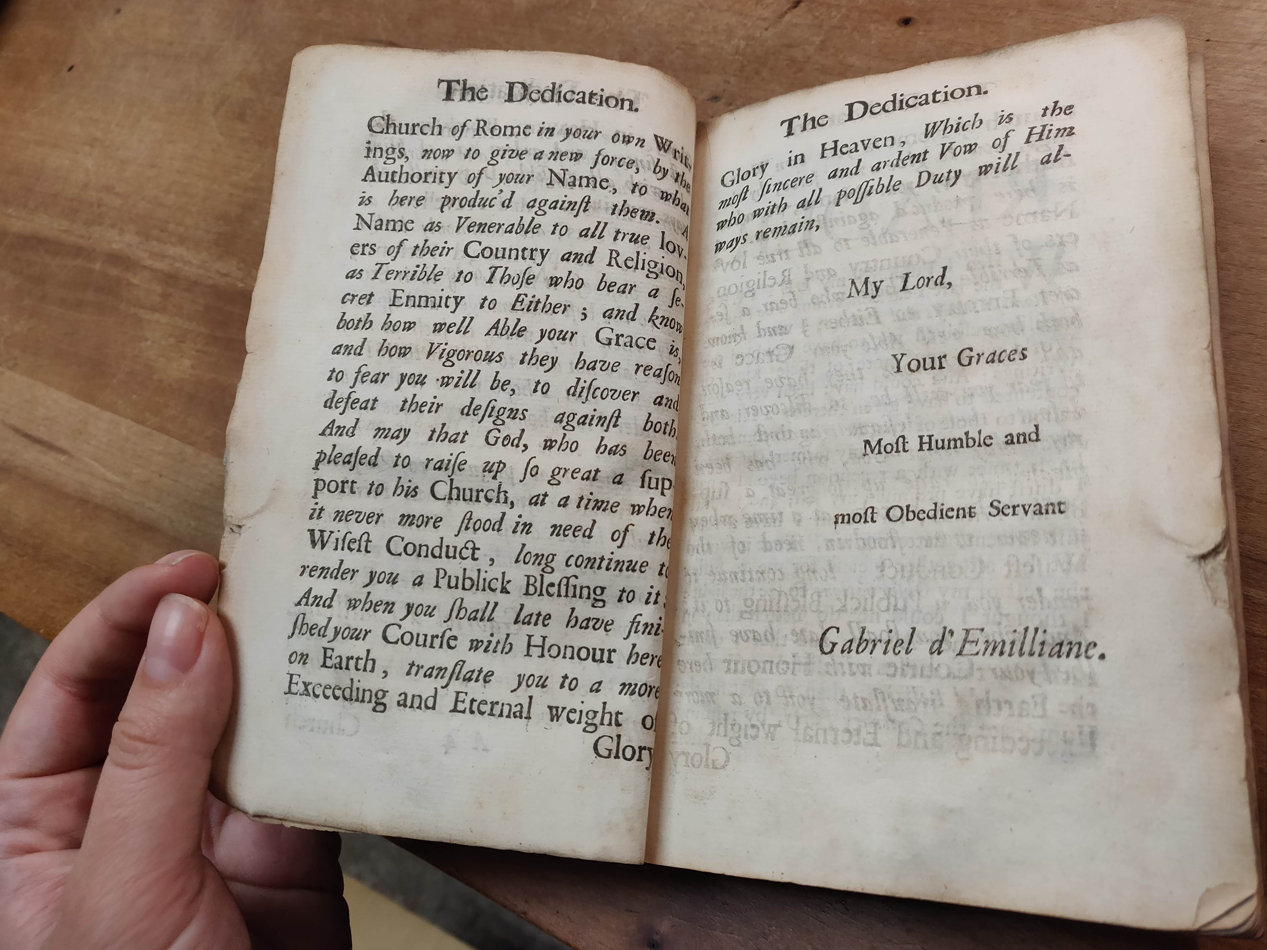 The Dedication.
Church of Rome in your own Writ-
ings, now to give a new force, by the
Authority of your Name, to what
is here produc'd against them. A
Name as Venerable to all true lov-
ers of their Country and Religion,
as Terrible to Thoſe who bear a ſe-
cret Enmity to Either ; and know
both how well Able your Grace is,
and how Vigorous they have reaſon
to fear you will be, to diſcover and
defeat their deſigns againſt both.
And may that God, who has been
pleaſed to raiſe up ſo great a ſup-
port to his Church, at a time when
it never more ſtood in need of the
Wiſeſt Conduct, long continue to
render you a Publick Bleſſing to it.
And when you ſhall late have fini-
ſhed your Courſe with Honour here
on Earth, tranſlate you to a more
Exceeding and Eternal weight of
Glory
The Dedication.
Glory in Heaven, Which is the
moſt ſincere and ardent Vow of Him
who with all poſſible Duty will al-
ways remain,
My Lord,
Your Graces
Moſt Humble and
moſt Obedient Servant
Gabriel d'Emilliane.